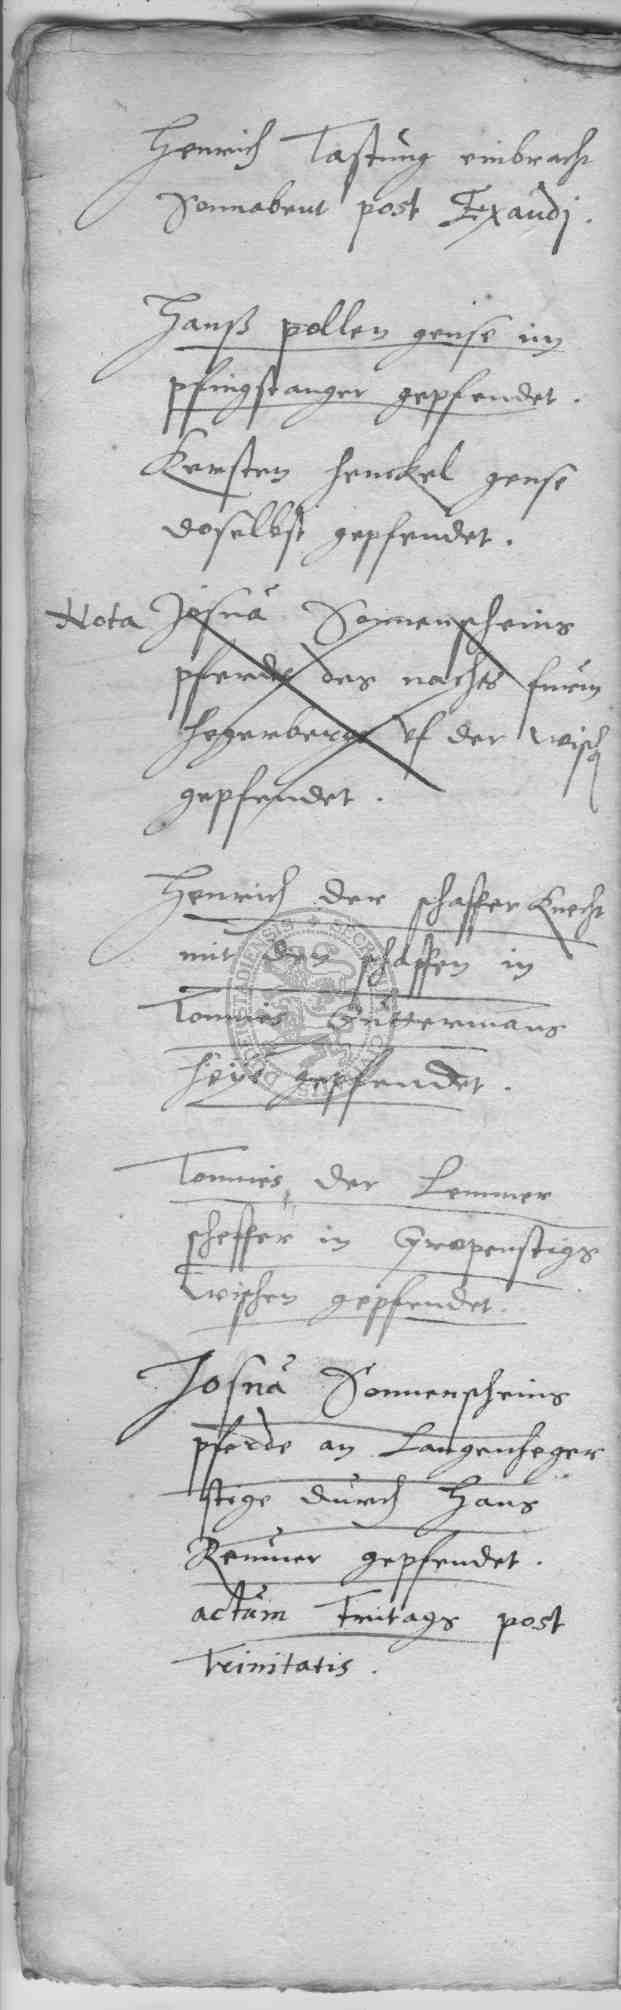 Henrich Tastung einbracht
Sonnabent post Exaudj.
Hanß pollen gense im
pfingstanger gepfendet.
Kersten henckel gense
doselbst gepfendet.
Nota Josua Sonnenscheins
pferde des nachts furm
hegerberge vf der wisch
gepfendet.
Henrich der schaffer Knecht
mit den schaffen in
Tonnies
heye gepfendet.
Tonnies der Lemmer
scheffer in Gropenstigs
wischen gepfendet.
Josua Sonnenscheins
pferde am Langenheger
stege durch Hans
Remmer gepfendet.
actum freitags post
Trinitatis.